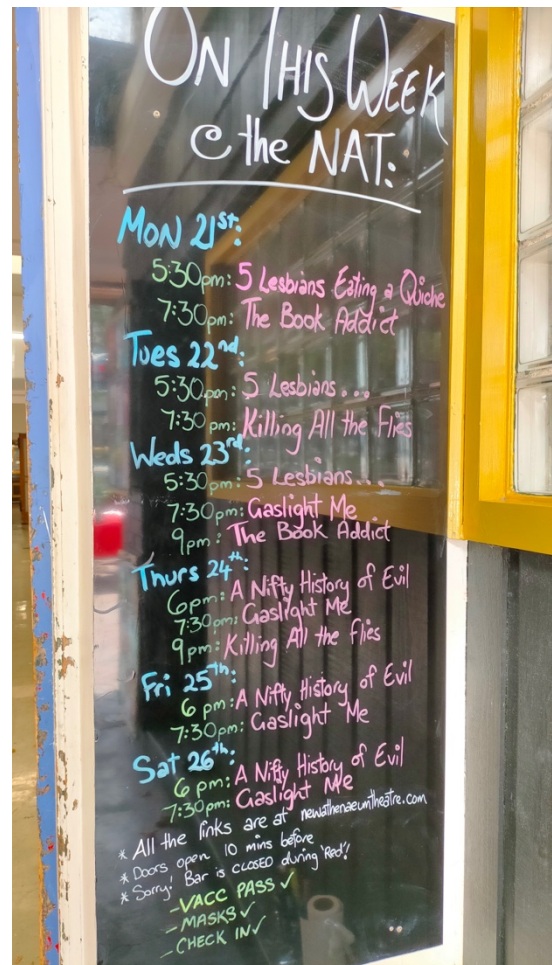 ON THIS WEEK
@ the NAT:
MON 21st:
5:30pm: 5 Lesbians Eating a Quiche
7:30pm: The Book Addict
Tues 22nd:
5:30pm: 5 Lesbians...
7:30pm: Killing All the Flies
Weds 23rd:
5:30pm: 5 Lesbians...
7:30pm: Gaslight Me
9pm: The Book Addict
Thurs 24th:
6pm: A Nifty History of Evil
7:30pm: Gaslight Me
9pm: Killing All the Flies
Fri 25th:
6pm: A Nifty History of Evil
7:30pm: Gaslight Me
Sat 26th:
6pm: A Nifty History of Evil
7:30pm: Gaslight Me
* All the links are at newathenaeumtheatre.com
* Doors open 10 mins before
* Sorry! Bar is CLOSED during 'Red'!
- VACC PASS ✓
- MASKS ✓
- CHECK IN ✓